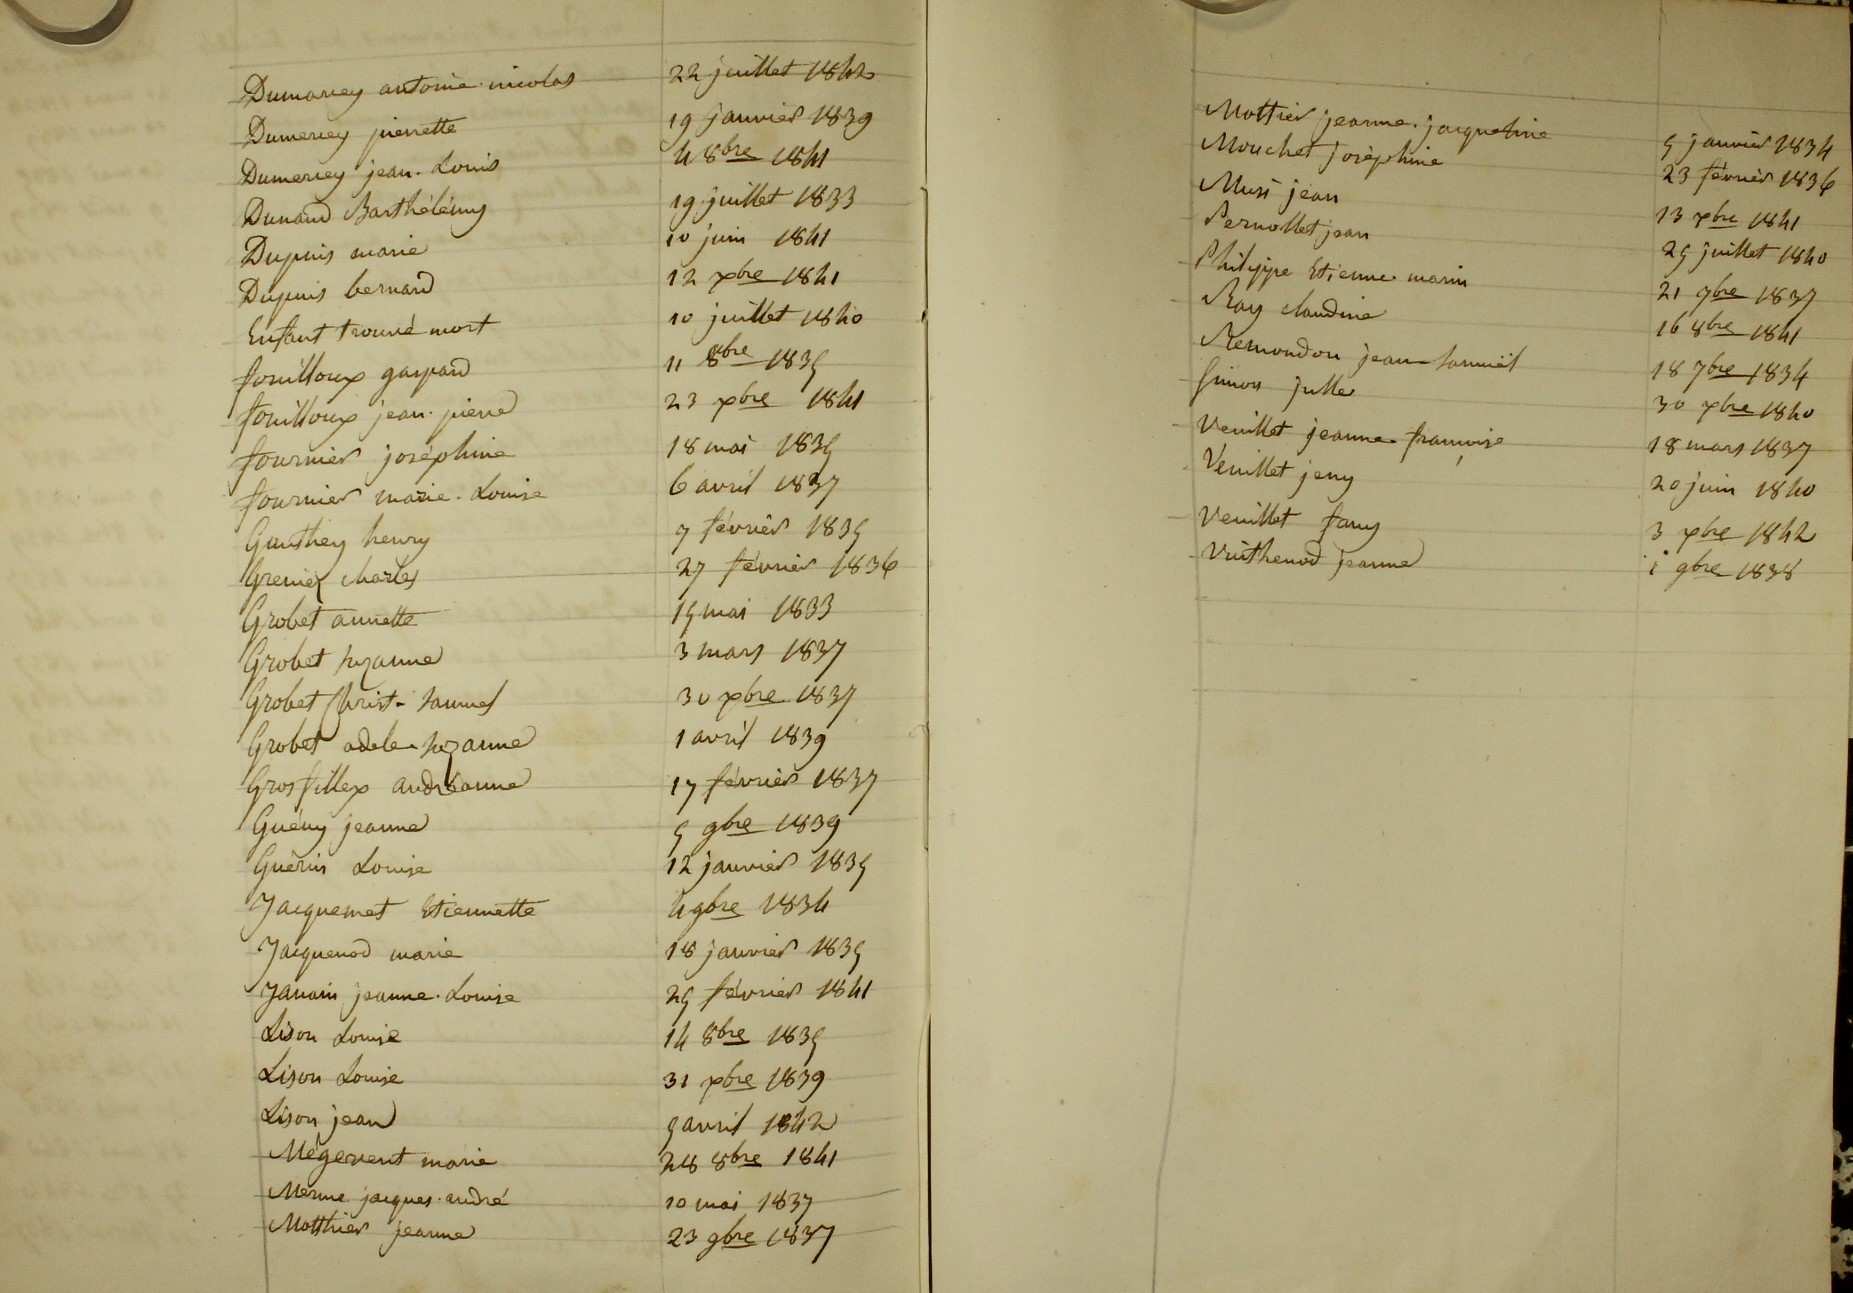 Dumarey antoine-nicolas 22 juillet 1842
Dumerey pierrette 19 janvier 1839
Dumerey jean-Louis 4 8bre 1841
Dunand Barthélémy 19 juillet 1833
Dupuis marie 10 juin 1841
Dupuis bernard 12 xbre 1841
Enfant trouvé mort 10 juillet 1840
fouilloux gaspard 11 8bre 1835
fouilloux jean-pierre 23 xbre 1841
fournier joséphine 18 mai 1835
fournier marie-Louise 6 avril 1837
Gauthey henry 9 février 1835
Grenier charles 27 février 1836
Grobet annette 15 mai 1833
Grobet suzanne 3 mars 1837
Grobet Christ- samuel 30 xbre 1837
Grobet adele-suzanne 1 avril 1839
Grosfillex andréanne 17 février 1837
Guény jeanne 5 9bre 1839
Guérin Louise 12 janvier 1835
Jacquemet Etiennette 4 9bre 1834
Jacquenod marie 18 janvier 1835
Janain jeanne-Louise 25 février 1841
Lison Louise 14 8bre 1835
Lison Louise 31 xbre 1839
Lison jean 5 avril 1842
Mégevent marie 28 8bre 1841
Merme jacques-andré 10 mai 1837
Motthier jeanne 23 9bre 1837
Mottier jeanne-jacqueline 5 janvier 1834
Mouchet joséphine 23 février 1836
Musi jean 13 xbre 1841
Pernollet jean 25 juillet 1840
Philippe Etienne-marin 21 9bre 1837
Ray claudine 16 8bre 1841
Remondon jean-samuël 18 7bre 1834
Simon julle 30 xbre 1840
Veuillet jeanne-françoise 18 mars 1837
Veuillet jeny 20 juin 1840
Veuillet fany 3 xbre 1842
Vuithenod jeanne 1 9bre 1838